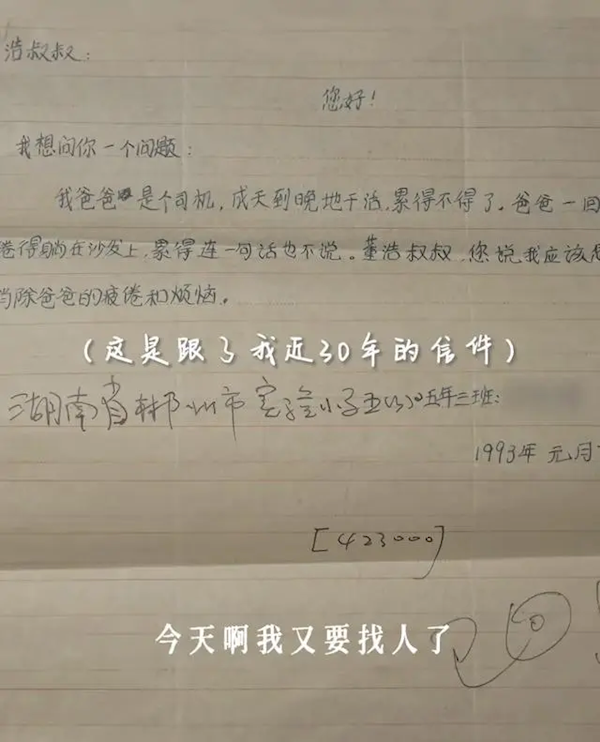 浩叔叔：
您好！
我想问你一个问题：
我爸爸是个司机，成天到晚地干活，累得不得了。爸爸一回
倦得躺在沙发上，累得连一句话也不说。董浩叔叔，您说我应该怎
消除爸爸的疲倦和烦恼。
（这是跟了我近30年的信件）
湖南省郴州市实验小学 五年三班：
1993年 元月
[423000]
今天啊我又要找人了